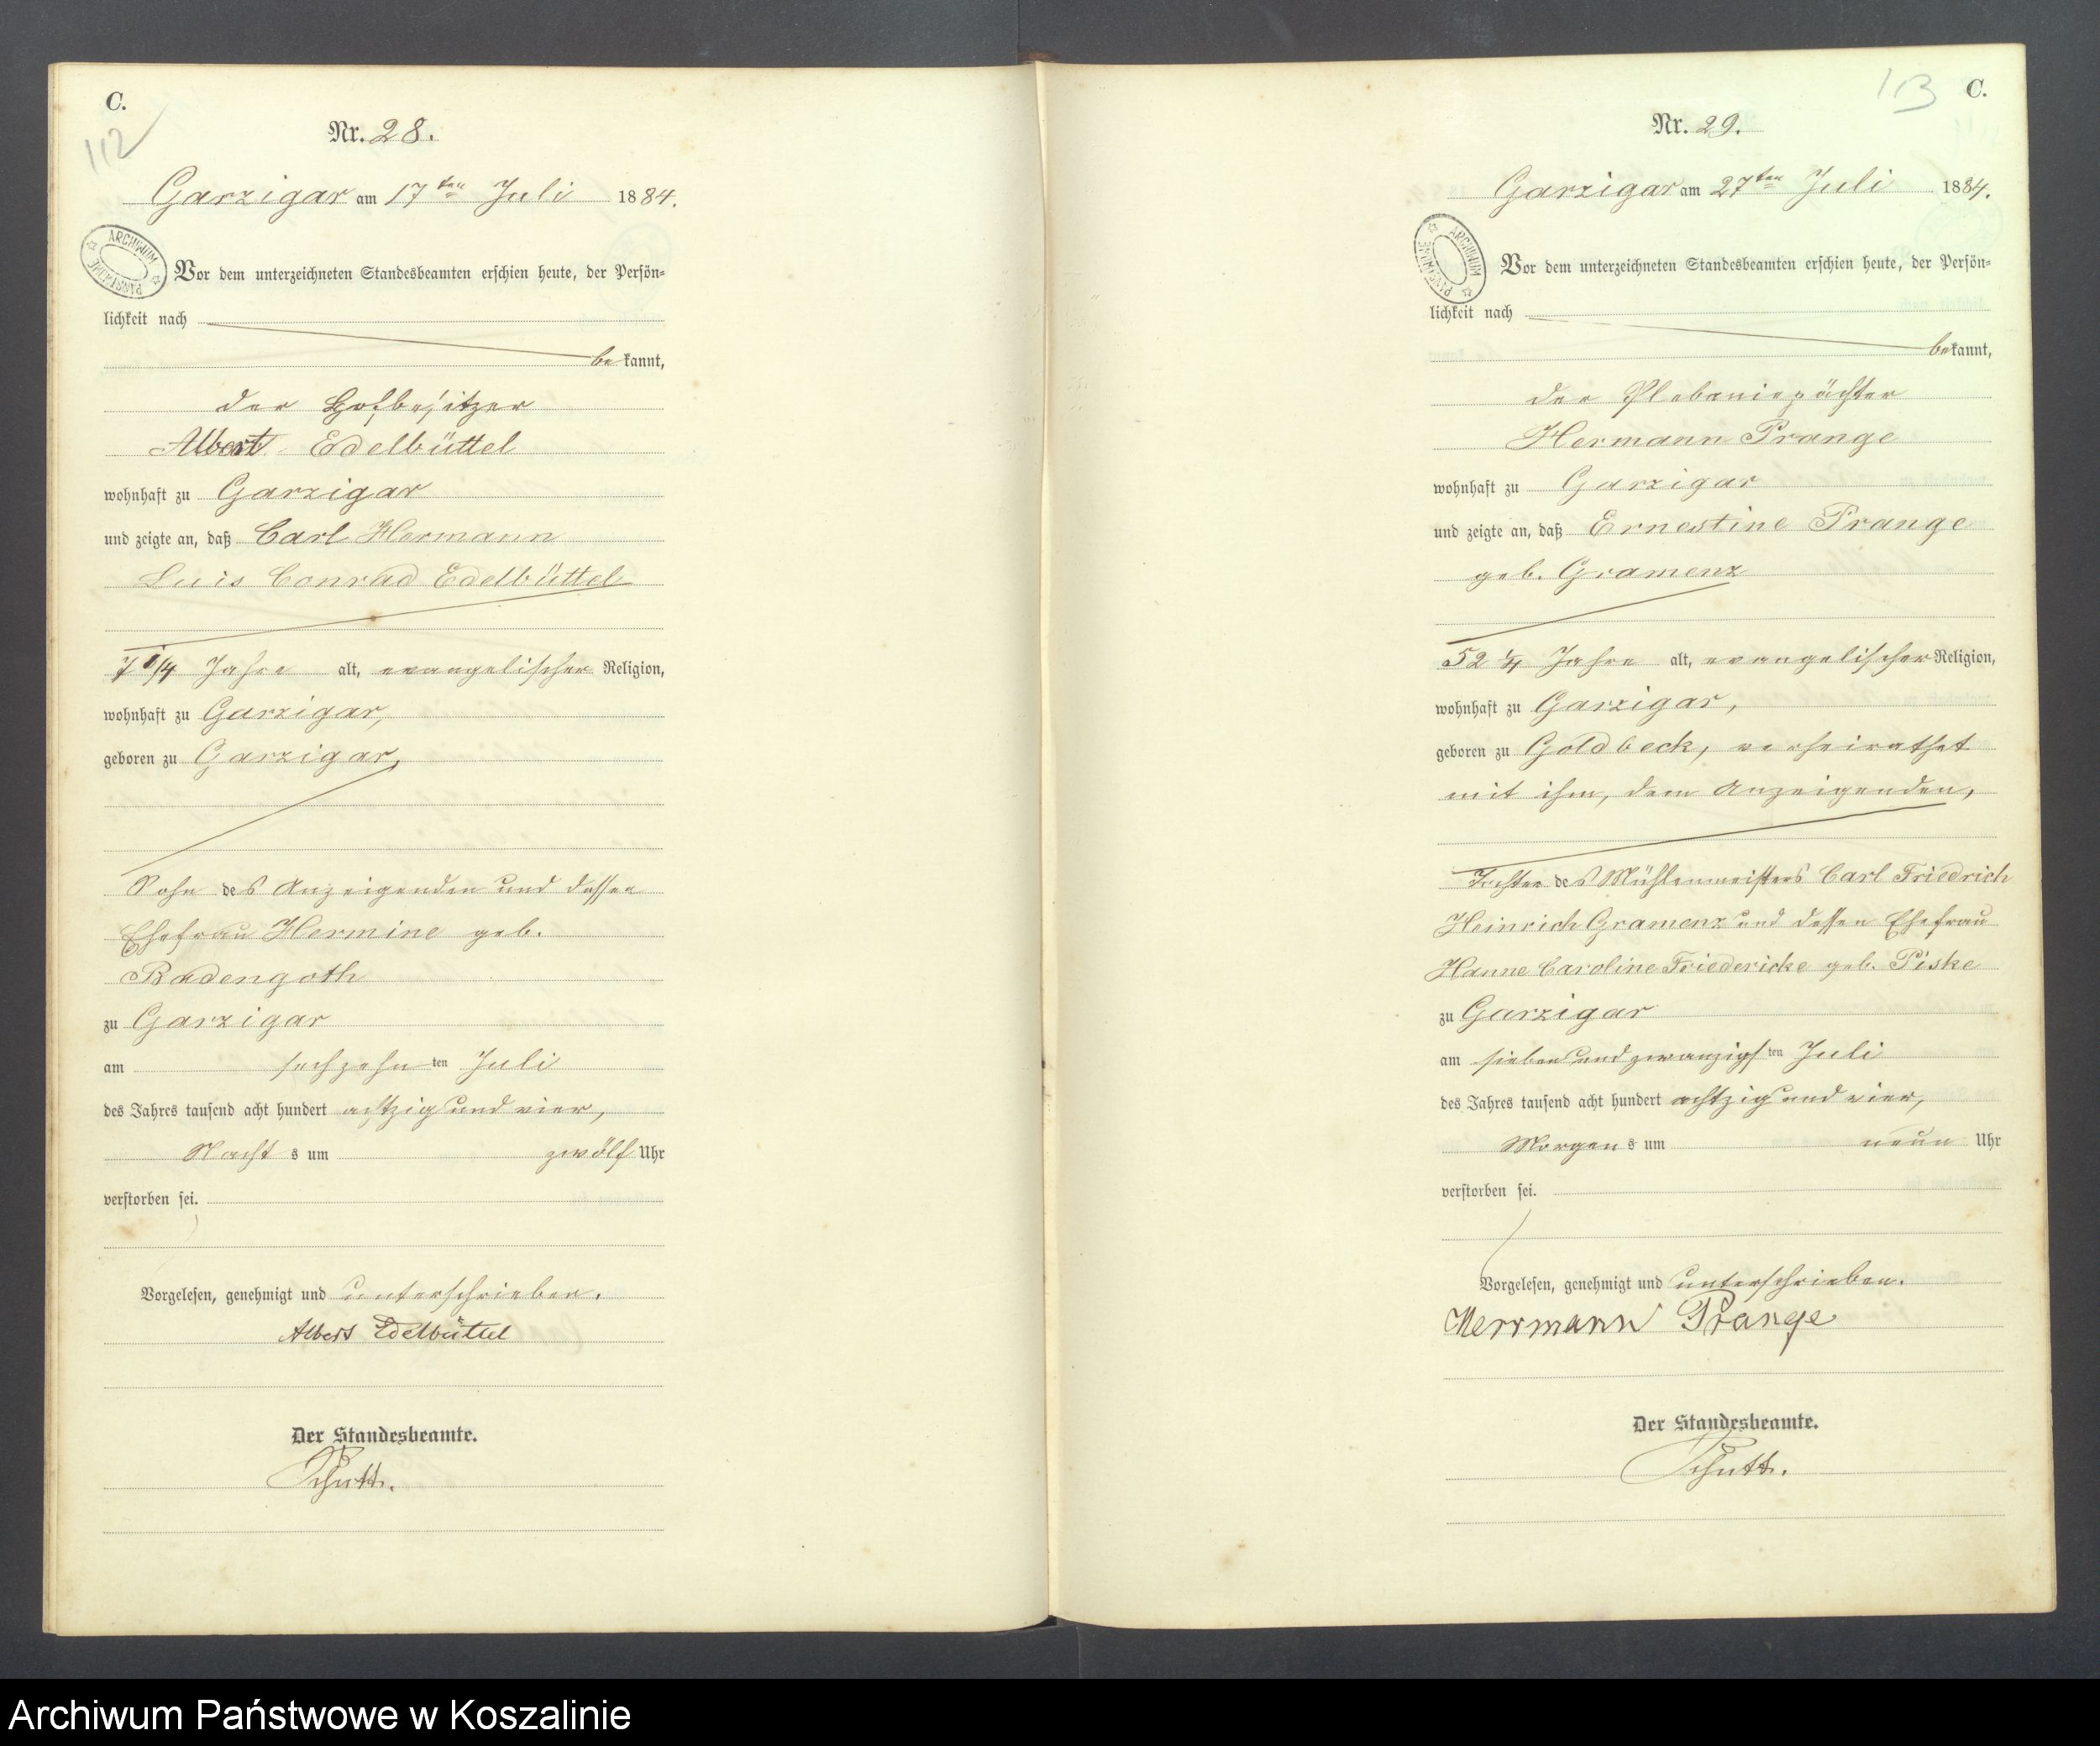 C.
112
Nr. 28.
Garzigar am 17ten Juli 1884.
ARCHIWUM PAŃSTWOWE
Vor dem unterzeichneten Standesbeamten erschien heute, der Persön=
lichkeit nach
bekannt,
der Hofbesitzer
Albert Edelbüttel
wohnhaft zu Garzigar
und zeigte an, daß Carl Hermann
Luis Conrad Edelbüttel
7 1/4 Jahre alt, evangelischer Religion,
wohnhaft zu Garzigar,
geboren zu Garzigar,
Sohn des Anzeigenden und dessen
Ehefrau Hermine geb.
Radengoth
zu Garzigar
am sechzehnten Juli
des Jahres tausend acht hundert achtzig und vier,
Nachts um zwölf Uhr
verstorben sei.
Vorgelesen, genehmigt und unterschrieben.
Albert Edelbüttel
Der Standesbeamte.
Schutt.
113
C.
Nr. 29.
Garzigar am 27ten Juli 1884.
ARCHIWUM PAŃSTWOWE
Vor dem unterzeichneten Standesbeamten erschien heute, der Persön=
lichkeit nach
bekannt,
der Plebaniepächter
Hermann Prange
wohnhaft zu Garzigar
und zeigte an, daß Ernestine Prange
geb. Gramenz
52 1/4 Jahre alt, evangelischer Religion,
wohnhaft zu Garzigar,
geboren zu Goldbeck, verheirathet
mit ihm, dem Anzeigenden,
Tochter des Mühlenmeisters Carl Friedrich
Heinrich Gramenz und dessen Ehefrau
Hanne Caroline Friedericke geb. Piske
zu Garzigar
am sieben und zwanzigsten Juli
des Jahres tausend acht hundert achtzig und vier,
Morgens um neun Uhr
verstorben sei.
Vorgelesen, genehmigt und unterschrieben.
Herrmann Prange
Der Standesbeamte.
Schutt.
Archiwum Państwowe w Koszalinie